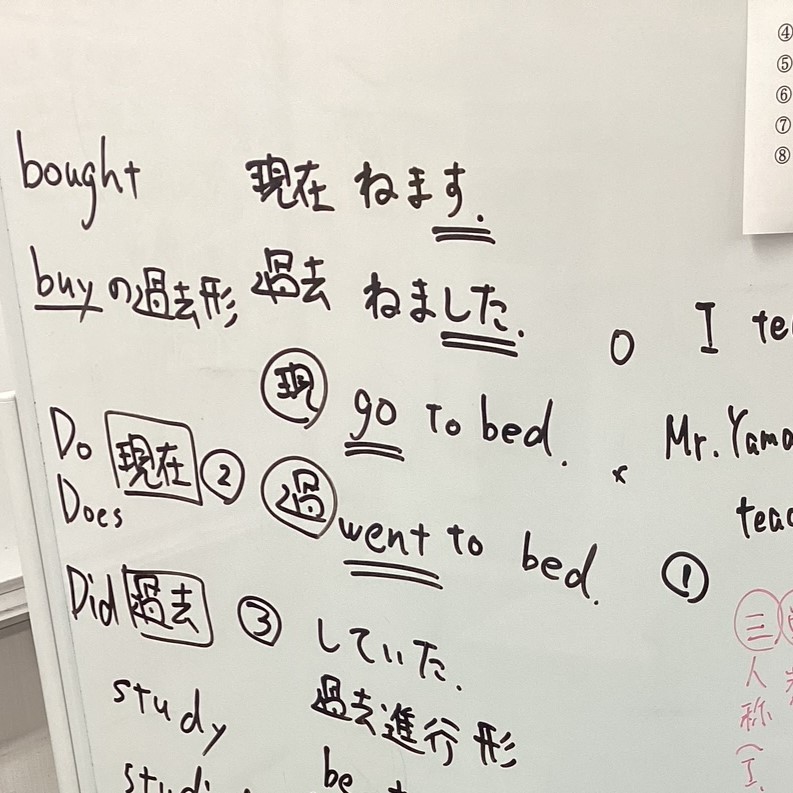 ④
⑤
⑥
⑦
⑧
bought
buyの過去形
現在 ねます.
過去 ねました.
現 go to bed.
過 went to bed.
Do
Does
現在 ②
Did 過去 ③
study
していた.
過去進行形
be
○ I
× Mr.
①
三
人
称
(I.